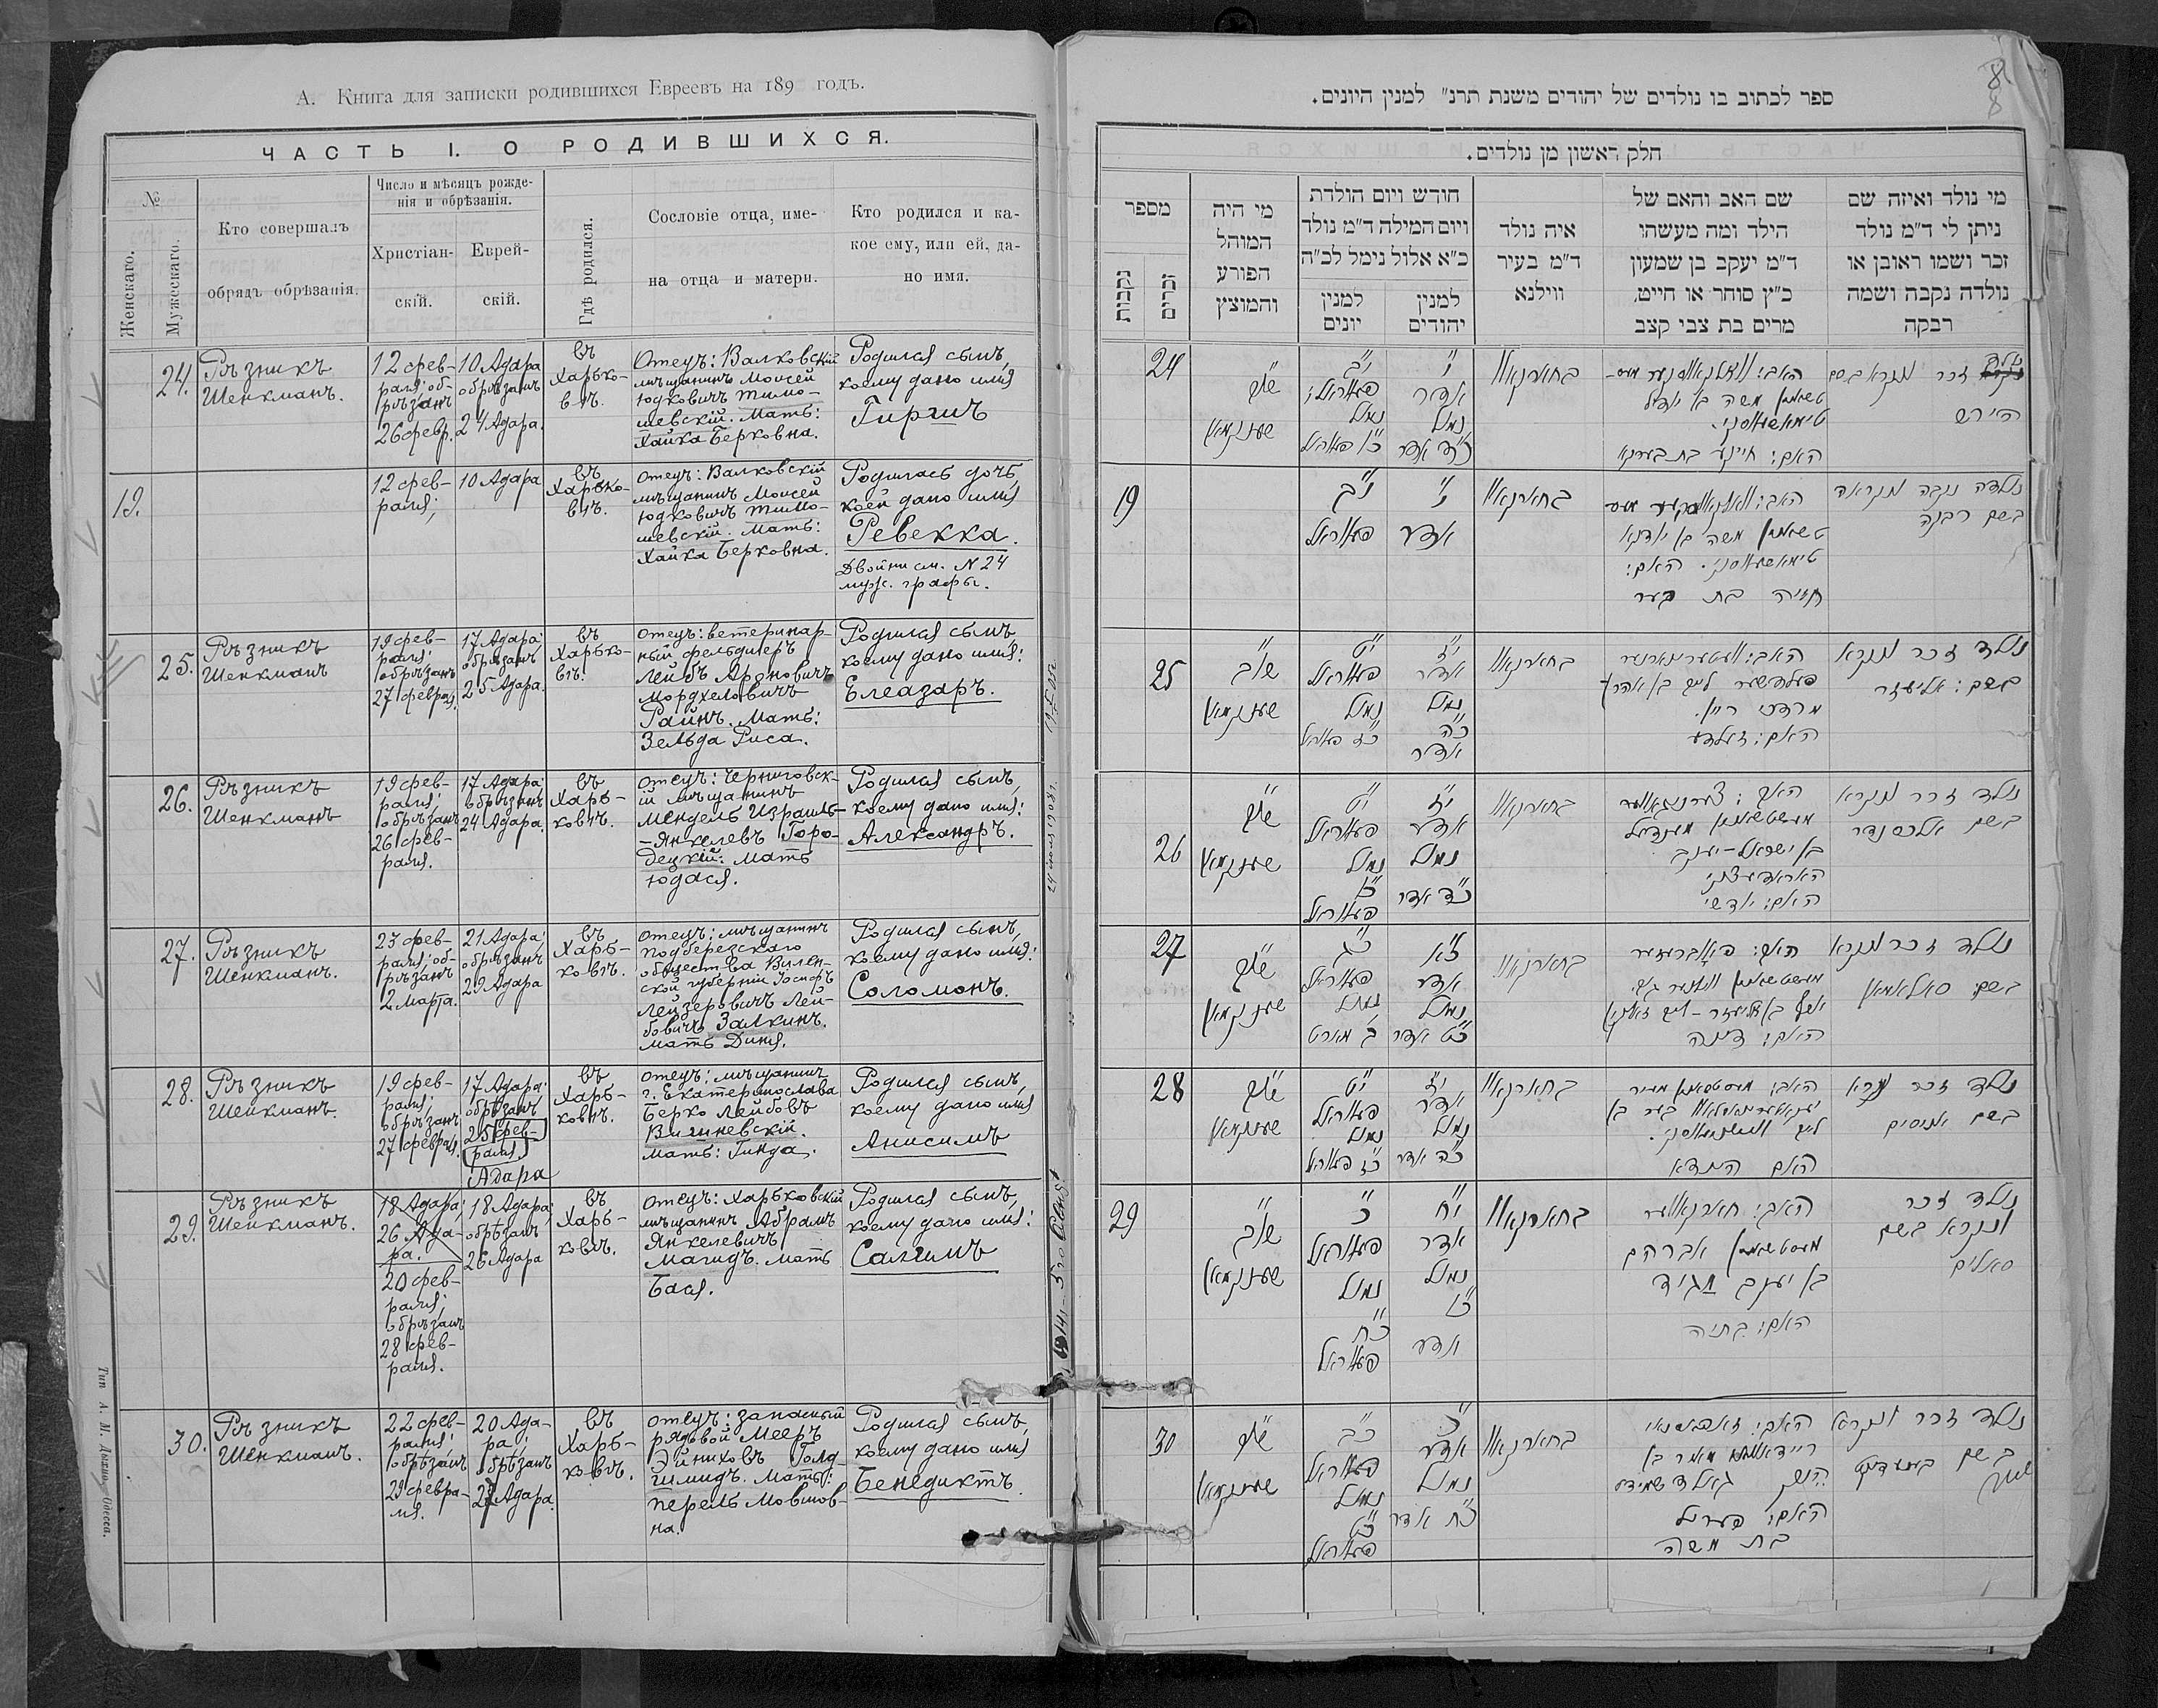 А. Книга для записки родившихся Евреевъ на 189 годъ.
ЧАСТЬ I. О РОДИВШИХСЯ.
№
Женскаго.
Мужескаго.
Кто совершалъ
обрядъ обрѣзанія.
Число и мѣсяцъ рожде-
нія и обрѣзанія.
Христіан-
скій.
Еврей-
скій.
Гдѣ родился.
Сословіе отца, име-
на отца и матери.
Кто родился и ка-
кое ему, или ей, да-
но имя.
24.
Рѣзникъ
Шенкманъ.
12 фев-
раля; об-
рѣзанъ
26 февр.
10 Адара
обрѣзанъ
24 Адара.
въ
Харько-
вѣ.
Отецъ: Валковскій
мѣщанинъ Моисей
Юдковичъ Тимо-
шевскій. Мать:
Хайка Берковна.
Родился сынъ,
коему дано имя
Гиршъ
19.
12 фев-
раля;
10 Адара
въ
Харько-
вѣ.
Отецъ: Валковскій
мѣщанинъ Моисей
Юдковичъ Тимо-
шевскій. Мать:
Хайка Берковна.
Родилась дочь,
коей дано имя
Ревекка.
Двойни см. N 24
муж. графы.
25.
Рѣзникъ
Шенкманъ
19 фев-
раля;
обрѣзанъ
27 февраля.
17 Адара;
обрѣзанъ
25 Адара.
въ
Харько-
вѣ.
Отецъ: ветеринар-
ный фельдшеръ
Лейбъ Ароновичъ
Мордхелевичъ
Райнъ. Мать:
Зельда Риса.
Родился сынъ,
коему дано имя:
Елеазаръ.
26.
Рѣзникъ
Шенкманъ
19 фев-
раля;
обрѣзанъ
26 фев-
раля.
17 Адара;
обрѣзанъ
24 Адара.
въ
Харь-
ковѣ.
Отецъ: Черниговск-
ій мѣщанинъ
Мендель Израиль-
-Янкелевъ Горо-
децкій. Мать
Юдася.
Родился сынъ,
коему дано имя:
Александръ.
27.
Рѣзникъ
Шенкманъ.
23 фев-
раля; об-
рѣзанъ
2 Марта.
21 Адара;
обрѣзанъ
29 Адара
въ
Харь-
ковѣ.
Отецъ: мѣщанинъ
подберезскаго
общества Вилен-
ской губерніи Іосифъ
Лейзеровичъ Лей-
бовичъ Залкинъ.
Мать Диня.
Родился сынъ,
коему дано имя:
Соломонъ.
28.
Рѣзникъ
Шенкманъ.
19 фев-
раля;
обрѣзанъ
27 февраля.
17 Адара;
обрѣзанъ
25 фев-
раля.
Адара
въ
Харь-
ковѣ.
Отецъ: мѣщанинъ
г. Екатеринослава
Берко Лейбовъ
Вишневскій.
Мать: Гинда.
Родился сынъ,
коему дано имя
Анисимъ
29.
Рѣзникъ
Шенкманъ.
18 Адара;
26 Ада-
ра.
20 фев-
раля;
обрѣзанъ
28 фев-
раля.
18 Адара;
обрѣзанъ
26 Адара
въ
Харь-
ковѣ.
Отецъ: Харьковскій
мѣщанинъ Абрамъ
Янкелевичъ
Магидъ. Мать
Бася.
Родился сынъ,
коему дано имя:
Салимъ
30.
Рѣзникъ
Шенкманъ.
22 фев-
раля;
обрѣзанъ
29 февра-
ля.
20 Ада-
ра;
обрѣзанъ
27 Адара.
въ
Харь-
ковѣ.
Отецъ: запасный
рядовой Мееръ
Эйниховъ Голд-
шмидъ. Мать:
Перель Мовшов-
на.
Родился сынъ,
коему дано имя
Бенедиктъ.
Тип. А. М. Дыхно, Одесса.
8
ספר לכתוב בו נולדים של יהודים משנת תרנ״ למנין היונים.
חלק ראשון מן נולדים.
מספר
נקבות
זכרים
מי היה
המוהל
הפורע
והמוצץ
חודש ויום הולדת
ויום המילה ד״מ נולד
כ״א אלול נימל לכ״ה
למנין
יונים
למנין
יהודים
איה נולד
ד״מ בעיר
ווילנא
שם האב והאם של
הילד ומה מעשהו
ד״מ יעקב בן שמעון
כ״ץ סוחר או חייט,
מרים בת צבי קצב
מי נולד ואיזה שם
ניתן לי ד״מ נולד
זכר ושמו ראובן או
נולדה נקבה ושמה
רבקה
24
שו״ב
שענקמאן
י״ב
פעווראל;
נמול
כ״ו פעווראל
י׳
אדר
נמול
כ״ד אדר
בחארקאוו
טשאנין משה בן יודל
טימאשעווסקי.
האם: חייקע בת בערקא
הירש
19
י״ב
פעווראל
י׳
אדר
בחארקאוו
טשאנין משה בן יודקא
טימאשעווסקי. האם:
חייה בת בער
נולדה נקבה ונקראה
בשם רבקה
25
שו״ב
שענקמאן
י״ט
פעווראל
נמול
כ״ז פעווראל
י״ז
אדר
נמול
כ״ה
אדר
בחארקאוו
האב: וועטערינארנער
פעלדשער לייב בן אהרן
מרדכי ריין.
האם: זעלדע
נולד זכר ונקרא
בשם: אליעזר
26
שו״ב
שענקמאן
י״ט
פעווראל
נמול
כ״ו
פעווראל
י״ז
אדר
נמול
כ״ד אדר
בחארקאוו
האב: צערניגאווער
מעשטשאנין מענדיל
בן ישראל-יעקב
האראדעצקי
האם: יודסי
נולד זכר ונקרא
בשם אלכסנדר
27
שו״ב
שענקמאן
כ״ג
פעווראל
נמול
ב׳ מארט
כ״א
אדר
נמול
כ״ט אדר
בחארקאוו
האם: דינה
נולד זכר ונקרא
בשם: סאלאמאן
28
שו״ב
שענקמאן
י״ט
פעווראל
נמול
כ״ז פעווראל
י״ז
אדר
נמול
כ״ה אדר
בחארקאוו
האם הינדא
נולד זכר ונקרא
בשם אניסים
29
שו״ב
שענקמאן
כ״
פעווראל
נמול
כ״ח
פעווראל
י״ח
אדר
נמול
כ״ו
אדר
בחארקאוו
האב: חארקאווער
מעשטשאנין אברהם
בן יעקב מגיד
האם: בתיה
נולד זכר
ונקרא בשם
סאלים
30
שו״ב
שענקמאן
כ״ב
פעווראל
נמול
כ״ט
פעווראל
כ׳
אדר
נמול
כ״ח אדר
בחארקאוו
האם: פעריל
בת משה
נולד זכר ונקרא
בשם בענעדיקט